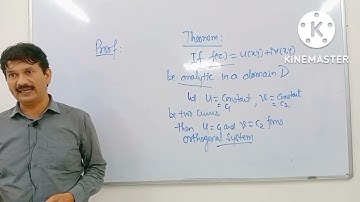 Proof:
Theorem:
If f(z) = u(x,y)+iv(x,y)
be analytic in a domain D
let u = constant, v = constant
= C1 = C2
be two curves
then u = C1 and v = C2 forms
orthogonal system
MADE WITH
KINEMASTER